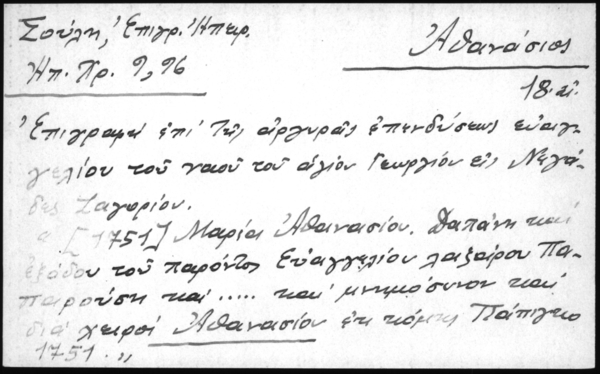 Σούλη, Ἐπιγρ. Ἠπειρ.
Ἀθανάσιος
Ἠπ. Χρ. 9, 96
18. αἰ.
Ἐπιγραφαί ἐπί τῆς ἀργυρᾶς ἐπενδύσεως εὐαγ-
γελίου τοῦ ναοῦ τοῦ ἁγίου Γεωργίου εἰς Νεγά-
δες Ζαγορίου.
[1751] Μαρία Ἀθανασίου. Δαπάνη καί
ἐξόδου τοῦ παρόντος Εὐαγγελίου λαζάρου Πα-
παρούση καί ..... καί μνημόσυνον καί
διά χειρός Ἀθανασίου ἐκ κόμης Πάπιγκο
1751. "